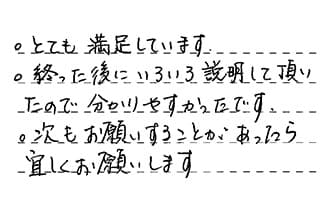 。とても満足しています.
。終った後にいろいろ説明して頂い
たので分かりやすかったです.
。次もお願いすることがあったら
宜しくお願いします